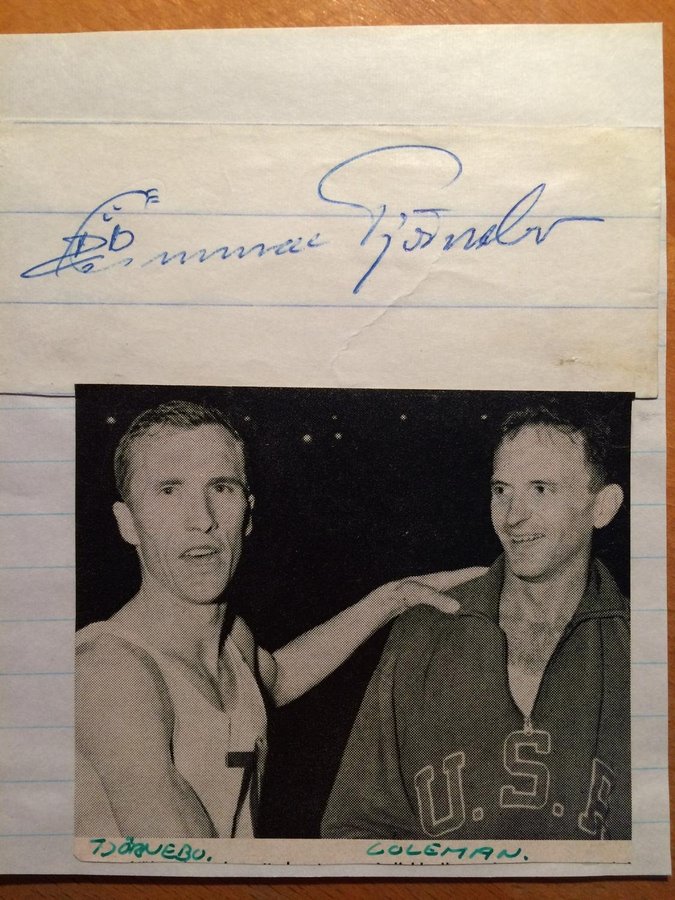 Gunnar Tjörnebo
7
U.S.A
TJÖRNEBO. COLEMAN.